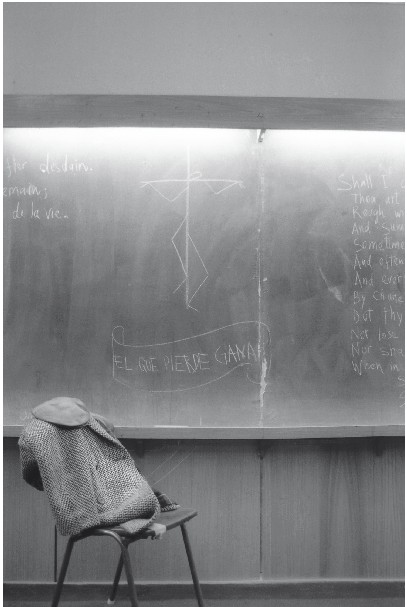 fier dédain.
demain;
de la vie.
EL QUE PIERDE GANA
Shall I
Thou art
Rough w
And Sum
Sometime
And often
And ever
By Chance
But thy
Nor lose
Nor sha
When in